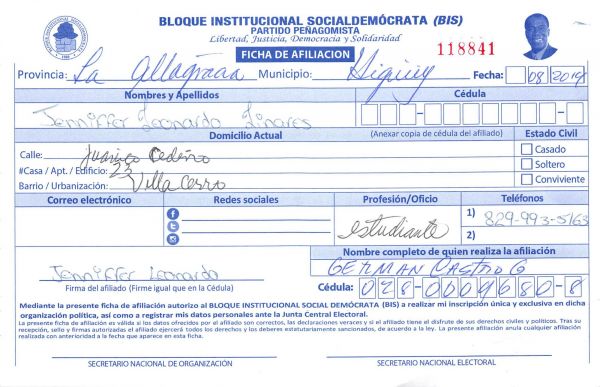 BLOQUE INSTITUCIONAL SOCIALDEMÓCRATA (BIS)
PARTIDO PEÑAGOMISTA
Libertad, Justicia, Democracia y Solidaridad
FICHA DE AFILIACION
118841
Provincia: La Altagracia Municipio: Higuey Fecha: 08 2019
Nombres y Apellidos Cédula
Jenniffer Leonardo Linares
Domicilio Actual (Anexar copia de cédula del afiliado) Estado Civil
Calle: Juanico Cedeño Casado
#Casa / Apt. / Edificio: 23 Soltero
Barrio / Urbanización: Villa Cerro Conviviente
Correo electrónico Redes sociales Profesión/Oficio Teléfonos
estudiante 1) 829-993-5163
2)
Nombre completo de quien realiza la afiliación
Jenniffer Leonardo GERMAN CASTRO G
Firma del afiliado (Firme igual que en la Cédula) Cédula: 028-0009680-8
Mediante la presente ficha de afiliación autorizo al BLOQUE INSTITUCIONAL SOCIAL DEMÓCRATA (BIS) a realizar mi inscripción única y exclusiva en dicha
organización política, así como a registrar mis datos personales ante la Junta Central Electoral.
La presente ficha de afiliación es válida si los datos ofrecidos por el afiliado son correctos, las declaraciones veraces y si el afiliado tiene el disfrute de sus derechos civiles y políticos. Tras su
recepción, sello y firmas autorizadas el afiliado ejercerá todos los derechos y los deberes estatutariamente sancionados, de acuerdo a la ley. La presente afiliación anula cualquier afiliación
realizada con anterioridad a la fecha que aparece en esta ficha.
SECRETARIO NACIONAL DE ORGANIZACIÓN SECRETARIO NACIONAL ELECTORAL